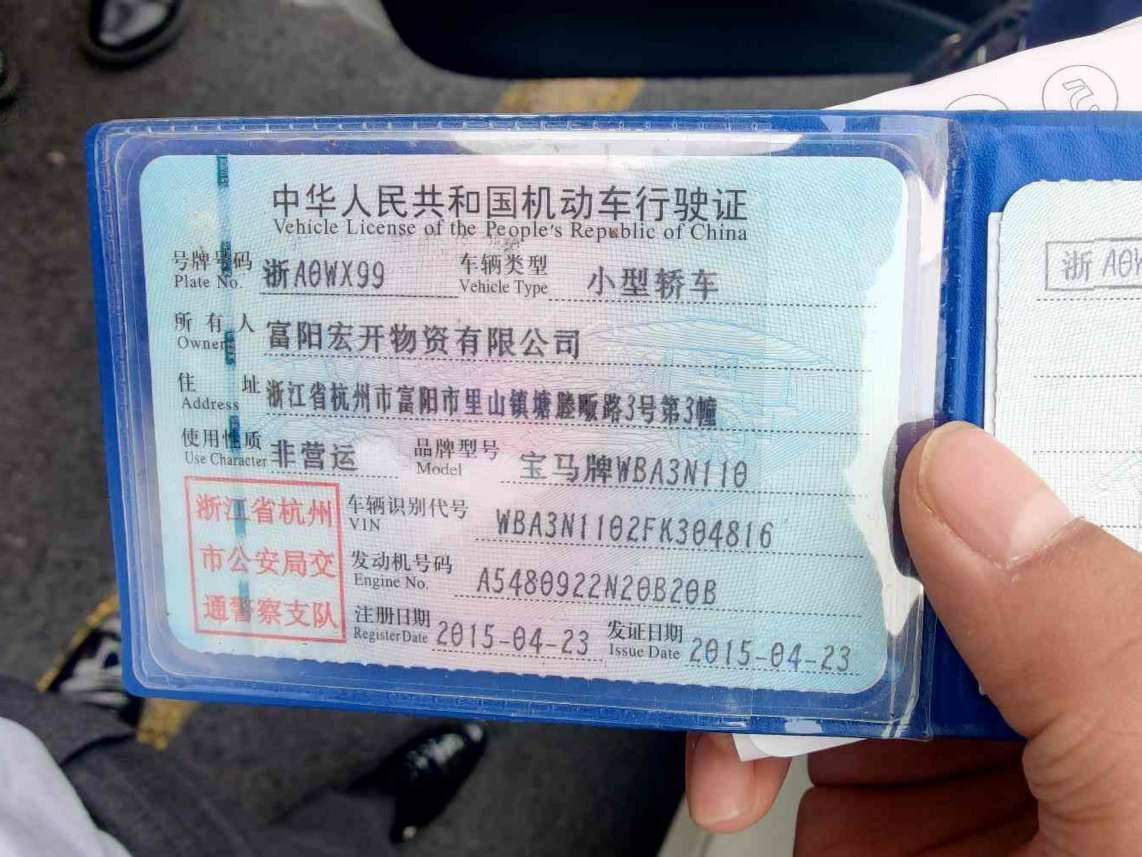 中华人民共和国机动车行驶证
Vehicle License of the People's Republic of China
号牌号码 浙A0WX99 车辆类型 小型轿车
Plate No. Vehicle Type
所有人 富阳宏开物资有限公司
Owner
住址 浙江省杭州市富阳市里山镇塘塍畈路3号第3幢
Address
使用性质 非营运 品牌型号 宝马牌WBA3N110
Use Character Model
浙江省杭州
市公安局交
通警察支队
车辆识别代号 WBA3N1102FK304816
VIN
发动机号码 A5480922N20B20B
Engine No.
注册日期 2015-04-23 发证日期 2015-04-23
Register Date Issue Date
浙A0W